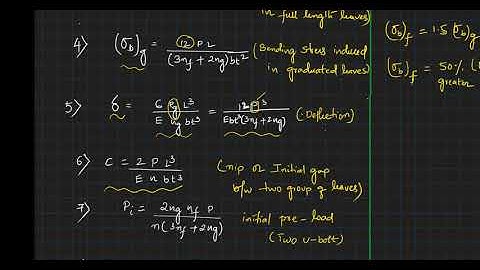 in full length leaves)
4) (σb)g = 12 P L / (3nf + 2ng) bt² (Bending stress induced
in graduated leaves)
5) δ = 6 Pg L³ / E ng bt³ = 12 P L³ / Ebt³(3nf + 2ng) (Deflection)
6) C = 2 P L³ / E n bt³ (nip or Initial gap
b/w two group of leaves)
7) Pi = 2ng nf P / n(3nf + 2ng) initial pre-load
(Two u-bolt)
(σb)f = 1.5 (σb)g
(σb)f = 50%
greater